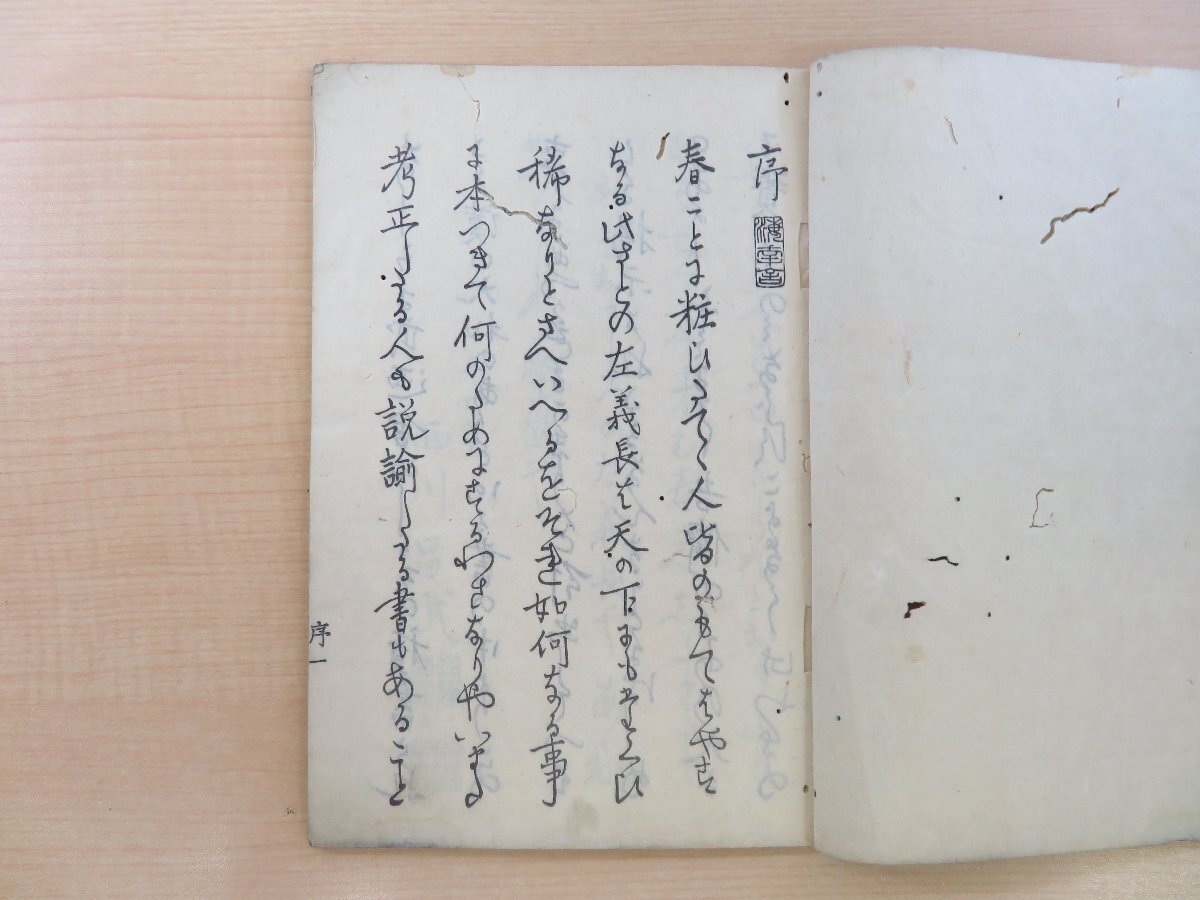 序
春ことに粧ひたてゝ人皆のもてはやす
なる此さとの左義長は天の下にもたくひ
稀なりとさへいへるをそれ如何なる事
に本つきて何のためにするわさなりやいまた
考正したる人も説諭したる書もあること
序一